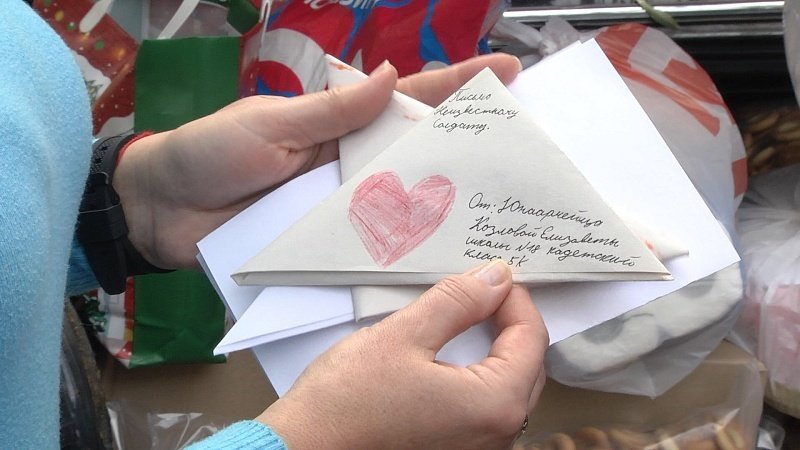 Письмо
Неизвестному
Солдату.
От: Юнаармейца
Козловой Елизаветы
школы №18 кадетского
класс 5К